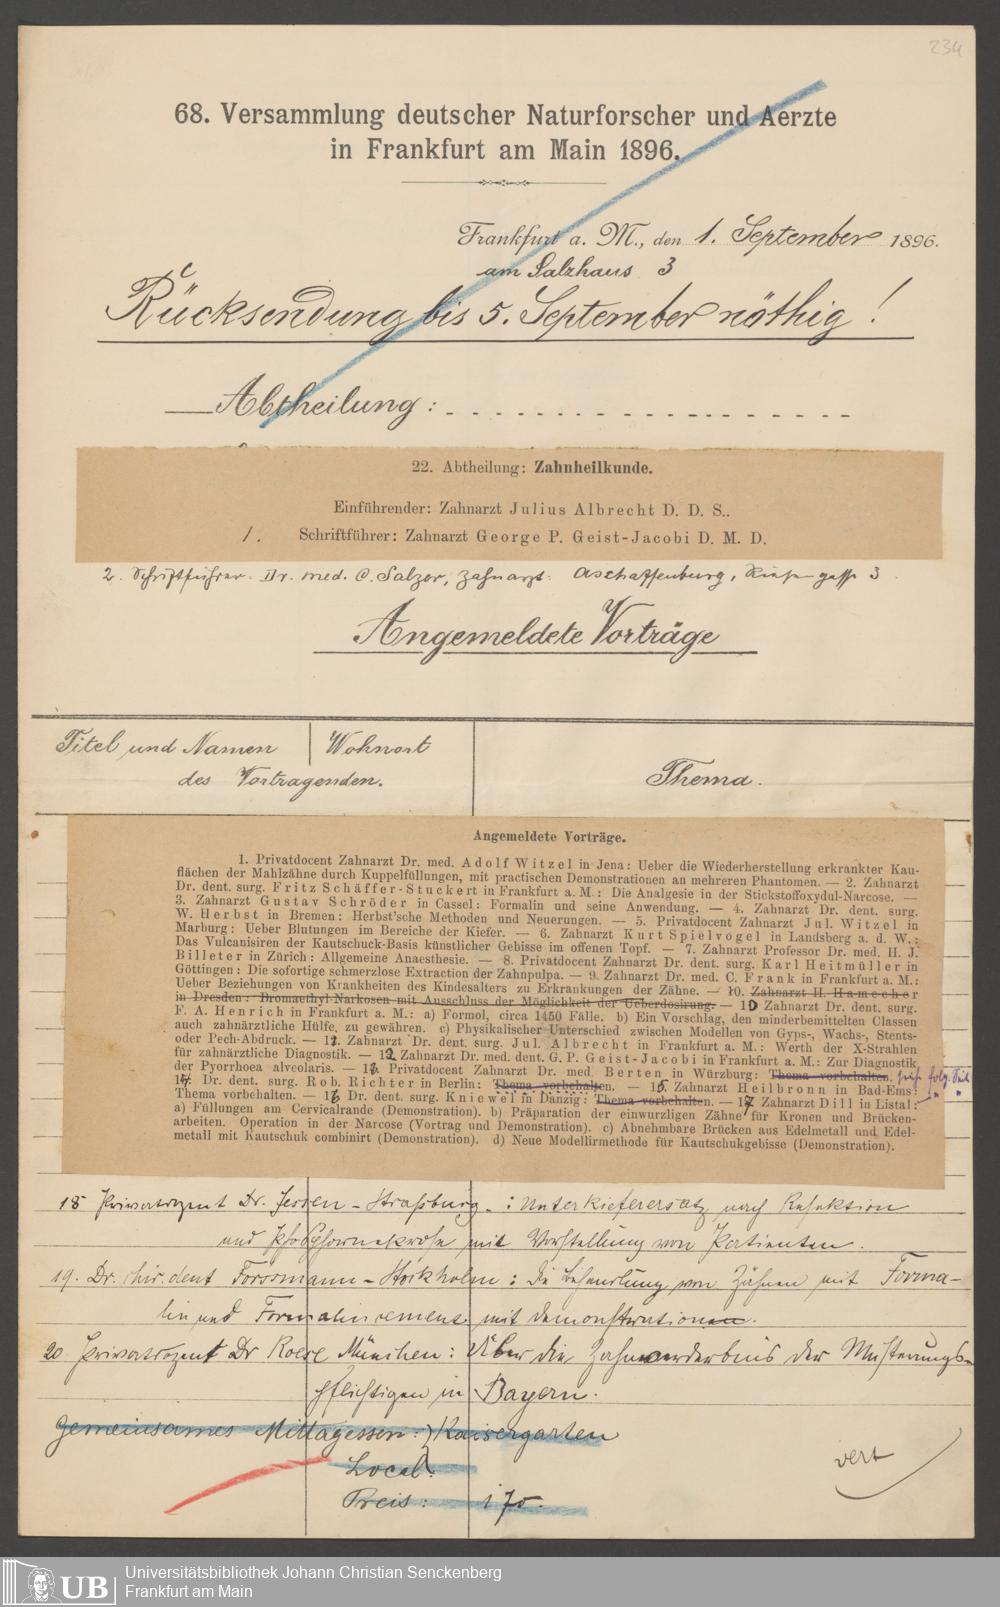 234
68. Versammlung deutscher Naturforscher und Aerzte
in Frankfurt am Main 1896.
Frankfurt a. M., den 1. September 1896.
am Salzhaus 3
Rücksendung bis 5. September nöthig!
Abtheilung:
22. Abtheilung: Zahnheilkunde.
Einführender: Zahnarzt Julius Albrecht D. D. S..
1. Schriftführer: Zahnarzt George P. Geist-Jacobi D. M. D.
2. Schriftführer: Dr. med. C. Salzer, Zahnarzt. Aschaffenburg, 3
Angemeldete Vorträge
Titel und Namen Wohnort
des Vortragenden.
Thema.
Angemeldete Vorträge.
1. Privatdocent Zahnarzt Dr. med. Adolf Witzel in Jena: Ueber die Wiederherstellung erkrankter Kau-
flächen der Mahlzähne durch Kuppelfüllungen, mit practischen Demonstrationen an mehreren Phantomen. — 2. Zahnarzt
Dr. dent. surg. Fritz Schäffer-Stuckert in Frankfurt a. M.: Die Analgesie in der Stickstoffoxydul-Narcose. —
3. Zahnarzt Gustav Schröder in Cassel: Formalin und seine Anwendung. — 4. Zahnarzt Dr. dent. surg.
W. Herbst in Bremen: Herbst'sche Methoden und Neuerungen. — 5. Privatdocent Zahnarzt Jul. Witzel in
Marburg: Ueber Blutungen im Bereiche der Kiefer. — 6. Zahnarzt Kurt Spielvogel in Landsberg a. d. W.:
Das Vulcanisiren der Kautschuck-Basis künstlicher Gebisse im offenen Topf. — 7. Zahnarzt Professor Dr. med. H. J.
Billeter in Zürich: Allgemeine Anaesthesie. — 8. Privatdocent Zahnarzt Dr. dent. surg. Karl Heitmüller in
Göttingen: Die sofortige schmerzlose Extraction der Zahnpulpa. — 9. Zahnarzt Dr. med. C. Frank in Frankfurt a. M.:
Ueber Beziehungen von Krankheiten des Kindesalters zu Erkrankungen der Zähne. — 10. Zahnarzt H. Hamecher
in Dresden: Bromaethyl-Narkosen mit Ausschluss der Möglichkeit der Ueberdosirung. — 10 Zahnarzt Dr. dent. surg.
F. A. Henrich in Frankfurt a. M.: a) Formol, circa 1450 Fälle. b) Ein Vorschlag, den minderbemittelten Classen
auch zahnärztliche Hülfe, zu gewähren. c) Physikalischer Unterschied zwischen Modellen von Gyps-, Wachs-, Stents-
oder Pech-Abdruck. — 11. Zahnarzt Dr. dent. surg. Jul. Albrecht in Frankfurt a. M.: Werth der X-Strahlen
für zahnärztliche Diagnostik. — 12 Zahnarzt Dr. med. dent. G. P. Geist-Jacobi in Frankfurt a. M.: Zur Diagnostik
der Pyorrhoea alveolaris. — 13 Privatdocent Zahnarzt Dr. med. Berten in Würzburg: Thema vorbehalten. folg. Seite
14. Dr. dent. surg. Rob. Richter in Berlin: Thema vorbehalten. — 15. Zahnarzt Heilbronn in Bad-Ems:
Thema vorbehalten. — 16 Dr. dent. surg. Kniewel in Danzig: Thema vorbehalten. — 17 Zahnarzt Dill in Listal:
a) Füllungen am Cervicalrande (Demonstration). b) Präparation der einwurzligen Zähne für Kronen und Brücken-
arbeiten. Operation in der Narcose (Vortrag und Demonstration). c) Abnehmbare Brücken aus Edelmetall und Edel-
metall mit Kautschuk combinirt (Demonstration). d) Neue Modellirmethode für Kautschukgebisse (Demonstration).
18 Privatdozent Dr. Jessen - Straßburg.: Unterkieferersatz nach Resektion
und Phosphornekrose mit Vorstellung von Patienten.
19. Dr. chir. dent Forssmann - Stockholm: die Behandlung von Zähnen mit Forma-
lin und Formalincement mit Demonstrationen.
20. Privatdozent Dr Roese München: Über die Zahnverderbnis der Musterungs-
pflichtigen in Bayern.
Gemeinsames Mittagessen: Kaisergarten
Local:
Preis: 1 70.
vert
UB Universitätsbibliothek Johann Christian Senckenberg
Frankfurt am Main